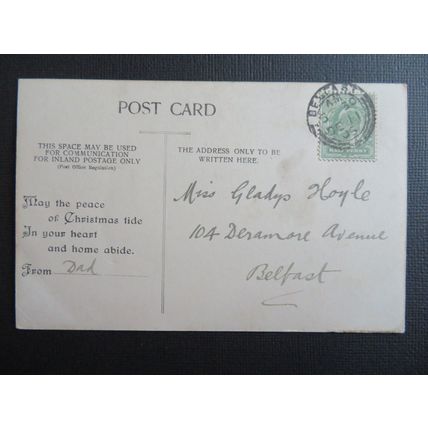 POST CARD
THIS SPACE MAY BE USED
FOR COMMUNICATION
FOR INLAND POSTAGE ONLY
(Post Office Regulation)
THE ADDRESS ONLY TO BE
WRITTEN HERE.
May the peace
of Christmas tide
In your heart
and home abide.
From Dad
Miss Gladys Hoyle
104 Deramore Avenue
Belfast
BELFAST
HALF PENNY